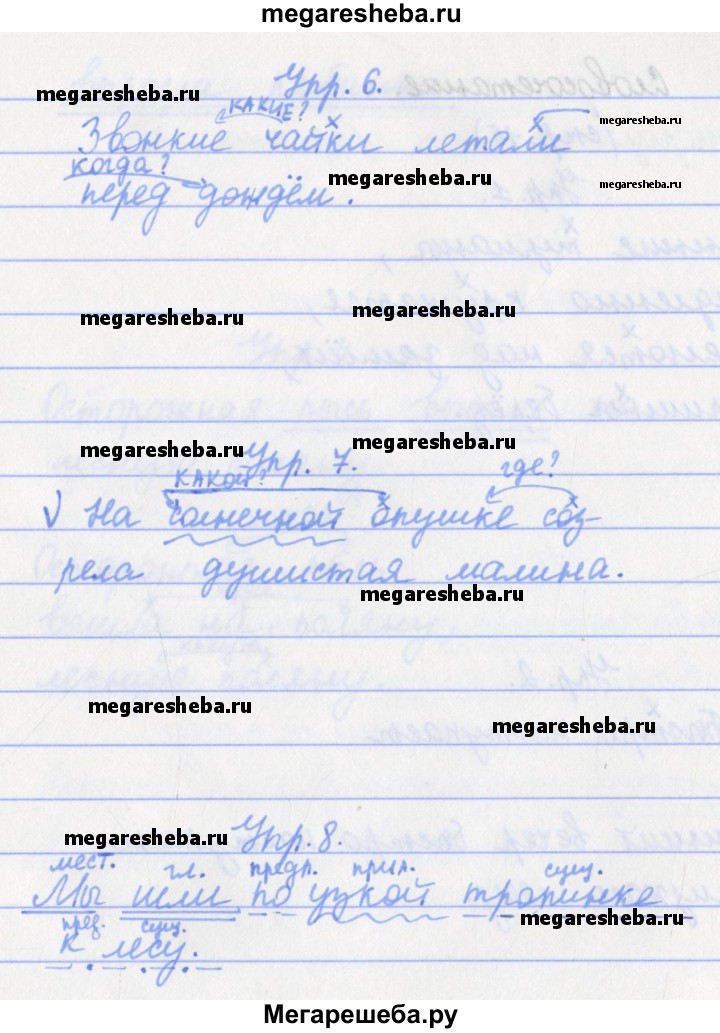 megaresheba.ru
словосочетание.
Упр. 6.
megaresheba.ru
КАКИЕ?
x x
megaresheba.ru
Звонкие чайки летали
когда?
megaresheba.ru
megaresheba.ru
перед дождём.
megaresheba.ru
megaresheba.ru
megaresheba.ru
megaresheba.ru
Упр. 7.
КАКОЙ? где?
x x
V На солнечной опушке соз-
рела душистая малина.
megaresheba.ru
megaresheba.ru
megaresheba.ru
megaresheba.ru
Упр. 8.
мест. гл. предл. прил. сущ.
Мы шли по узкой тропинке
megaresheba.ru
пред. сущ.
к лесу.
Мегарешеба.ру